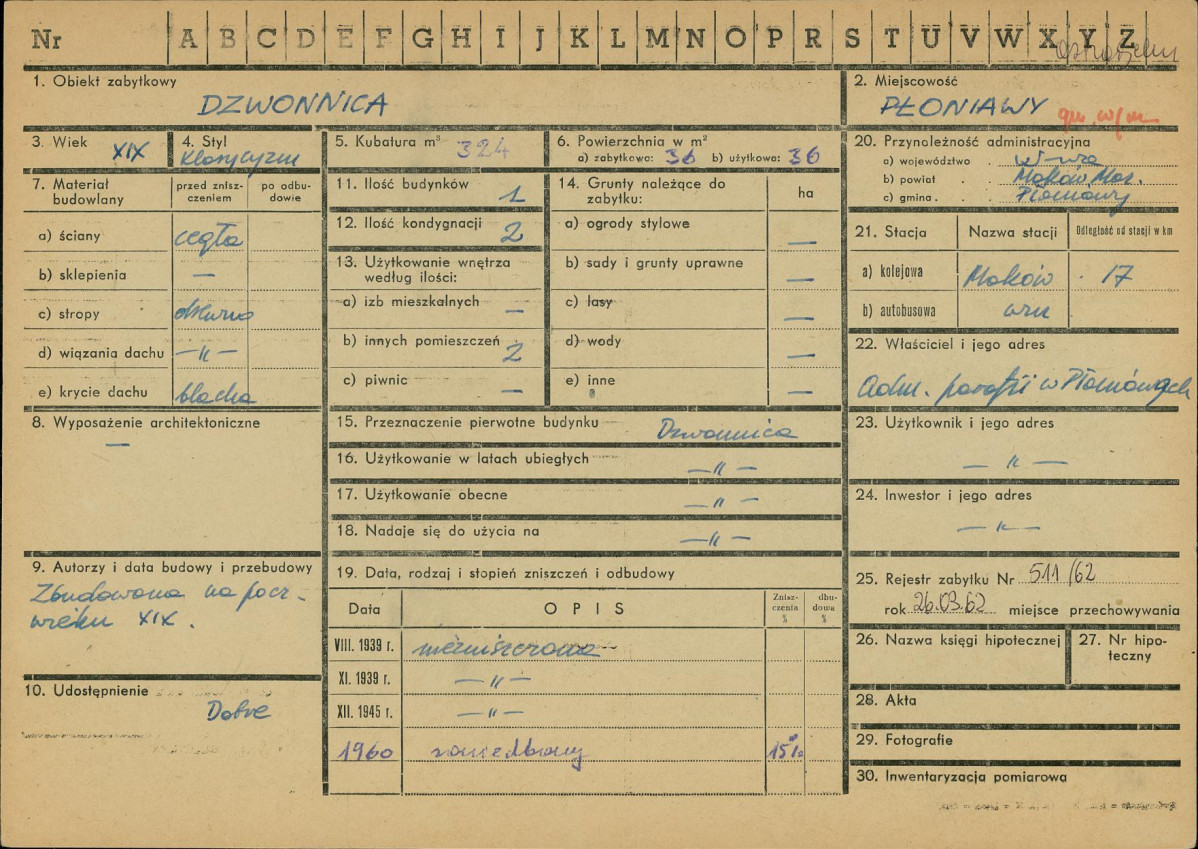 Nr A B C D E F G H I J K L M N O P R S T U V W X Y Z
1. Obiekt zabytkowy
DZWONNICA
2. Miejscowość
PŁONIAWY
3. Wiek XIX
4. Styl
Klasycyzm
5. Kubatura m³ 324
6. Powierzchnia w m²
a) zabytkowa: 36 b) użytkowa: 36
20. Przynależność administracyjna
a) województwo . W-wa
b) powiat . . Maków Maz.
c) gmina . . Płoniawy
7. Materiał budowlany
przed zniszczeniem
po odbudowie
a) ściany cegła
b) sklepienia —
c) stropy drewno
d) wiązania dachu —〃—
e) krycie dachu blacha
11. Ilość budynków 1
12. Ilość kondygnacji 2
13. Użytkowanie wnętrza
według ilości:
a) izb mieszkalnych —
b) innych pomieszczeń 2
c) piwnic —
14. Grunty należące do
zabytku:
ha
a) ogrody stylowe —
b) sady i grunty uprawne —
c) lasy —
d) wody —
e) inne —
21. Stacja Nazwa stacji Odległość od stacji w km
a) kolejowa Maków 17
b) autobusowa
22. Właściciel i jego adres
Adm. parafii w Płoniawach
8. Wyposażenie architektoniczne
—
15. Przeznaczenie pierwotne budynku Dzwonnica
16. Użytkowanie w latach ubiegłych —〃—
17. Użytkowanie obecne —〃—
18. Nadaje się do użycia na —〃—
23. Użytkownik i jego adres
—〃—
24. Inwestor i jego adres
—〃—
9. Autorzy i data budowy i przebudowy
Zbudowana na pocz.
wieku XIX.
10. Udostępnienie
Dobre
19. Data, rodzaj i stopień zniszczeń i odbudowy
Data OPIS Zniszczenia % dbudowa %
VIII. 1939 r. niezniszczona
XI. 1939 r. —〃—
XII. 1945 r. —〃—
1960 zaniedbany 15%
25. Rejestr zabytku Nr 511/62
rok 26.03.62 miejsce przechowywania
26. Nazwa księgi hipotecznej
27. Nr hipoteczny
28. Akta
29. Fotografie
30. Inwentaryzacja pomiarowa